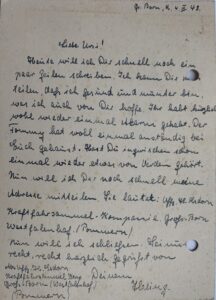 Gr. Born, d. 4.II.43.
Liebe Ursi!
Heute will ich Dir schnell noch ein
paar Zeilen schreiben. Ich kann Dir mit
teilen daß ich gesund und munter bin,
was ich auch von Dir hoffe. Ihr habt
wohl wieder einmal Alarm gehabt. Der
Tommy hat wohl einmal anständig bei
Euch gehaust. Hast Du inzwischen schon
einmal wieder etwas von gehört.
Nun will ich Dir noch schnell meine
Adresse mitteilen. Sie lautet: Uffz.
Kraftfahrsammel-Kompanie Groß-Born
Westfalenhof (Pommern)
Nun will ich schließen. Sei nun
recht, recht herzlich gegrüßt von
Deinem
Groß-Born (Westfalenhof)
Pommern